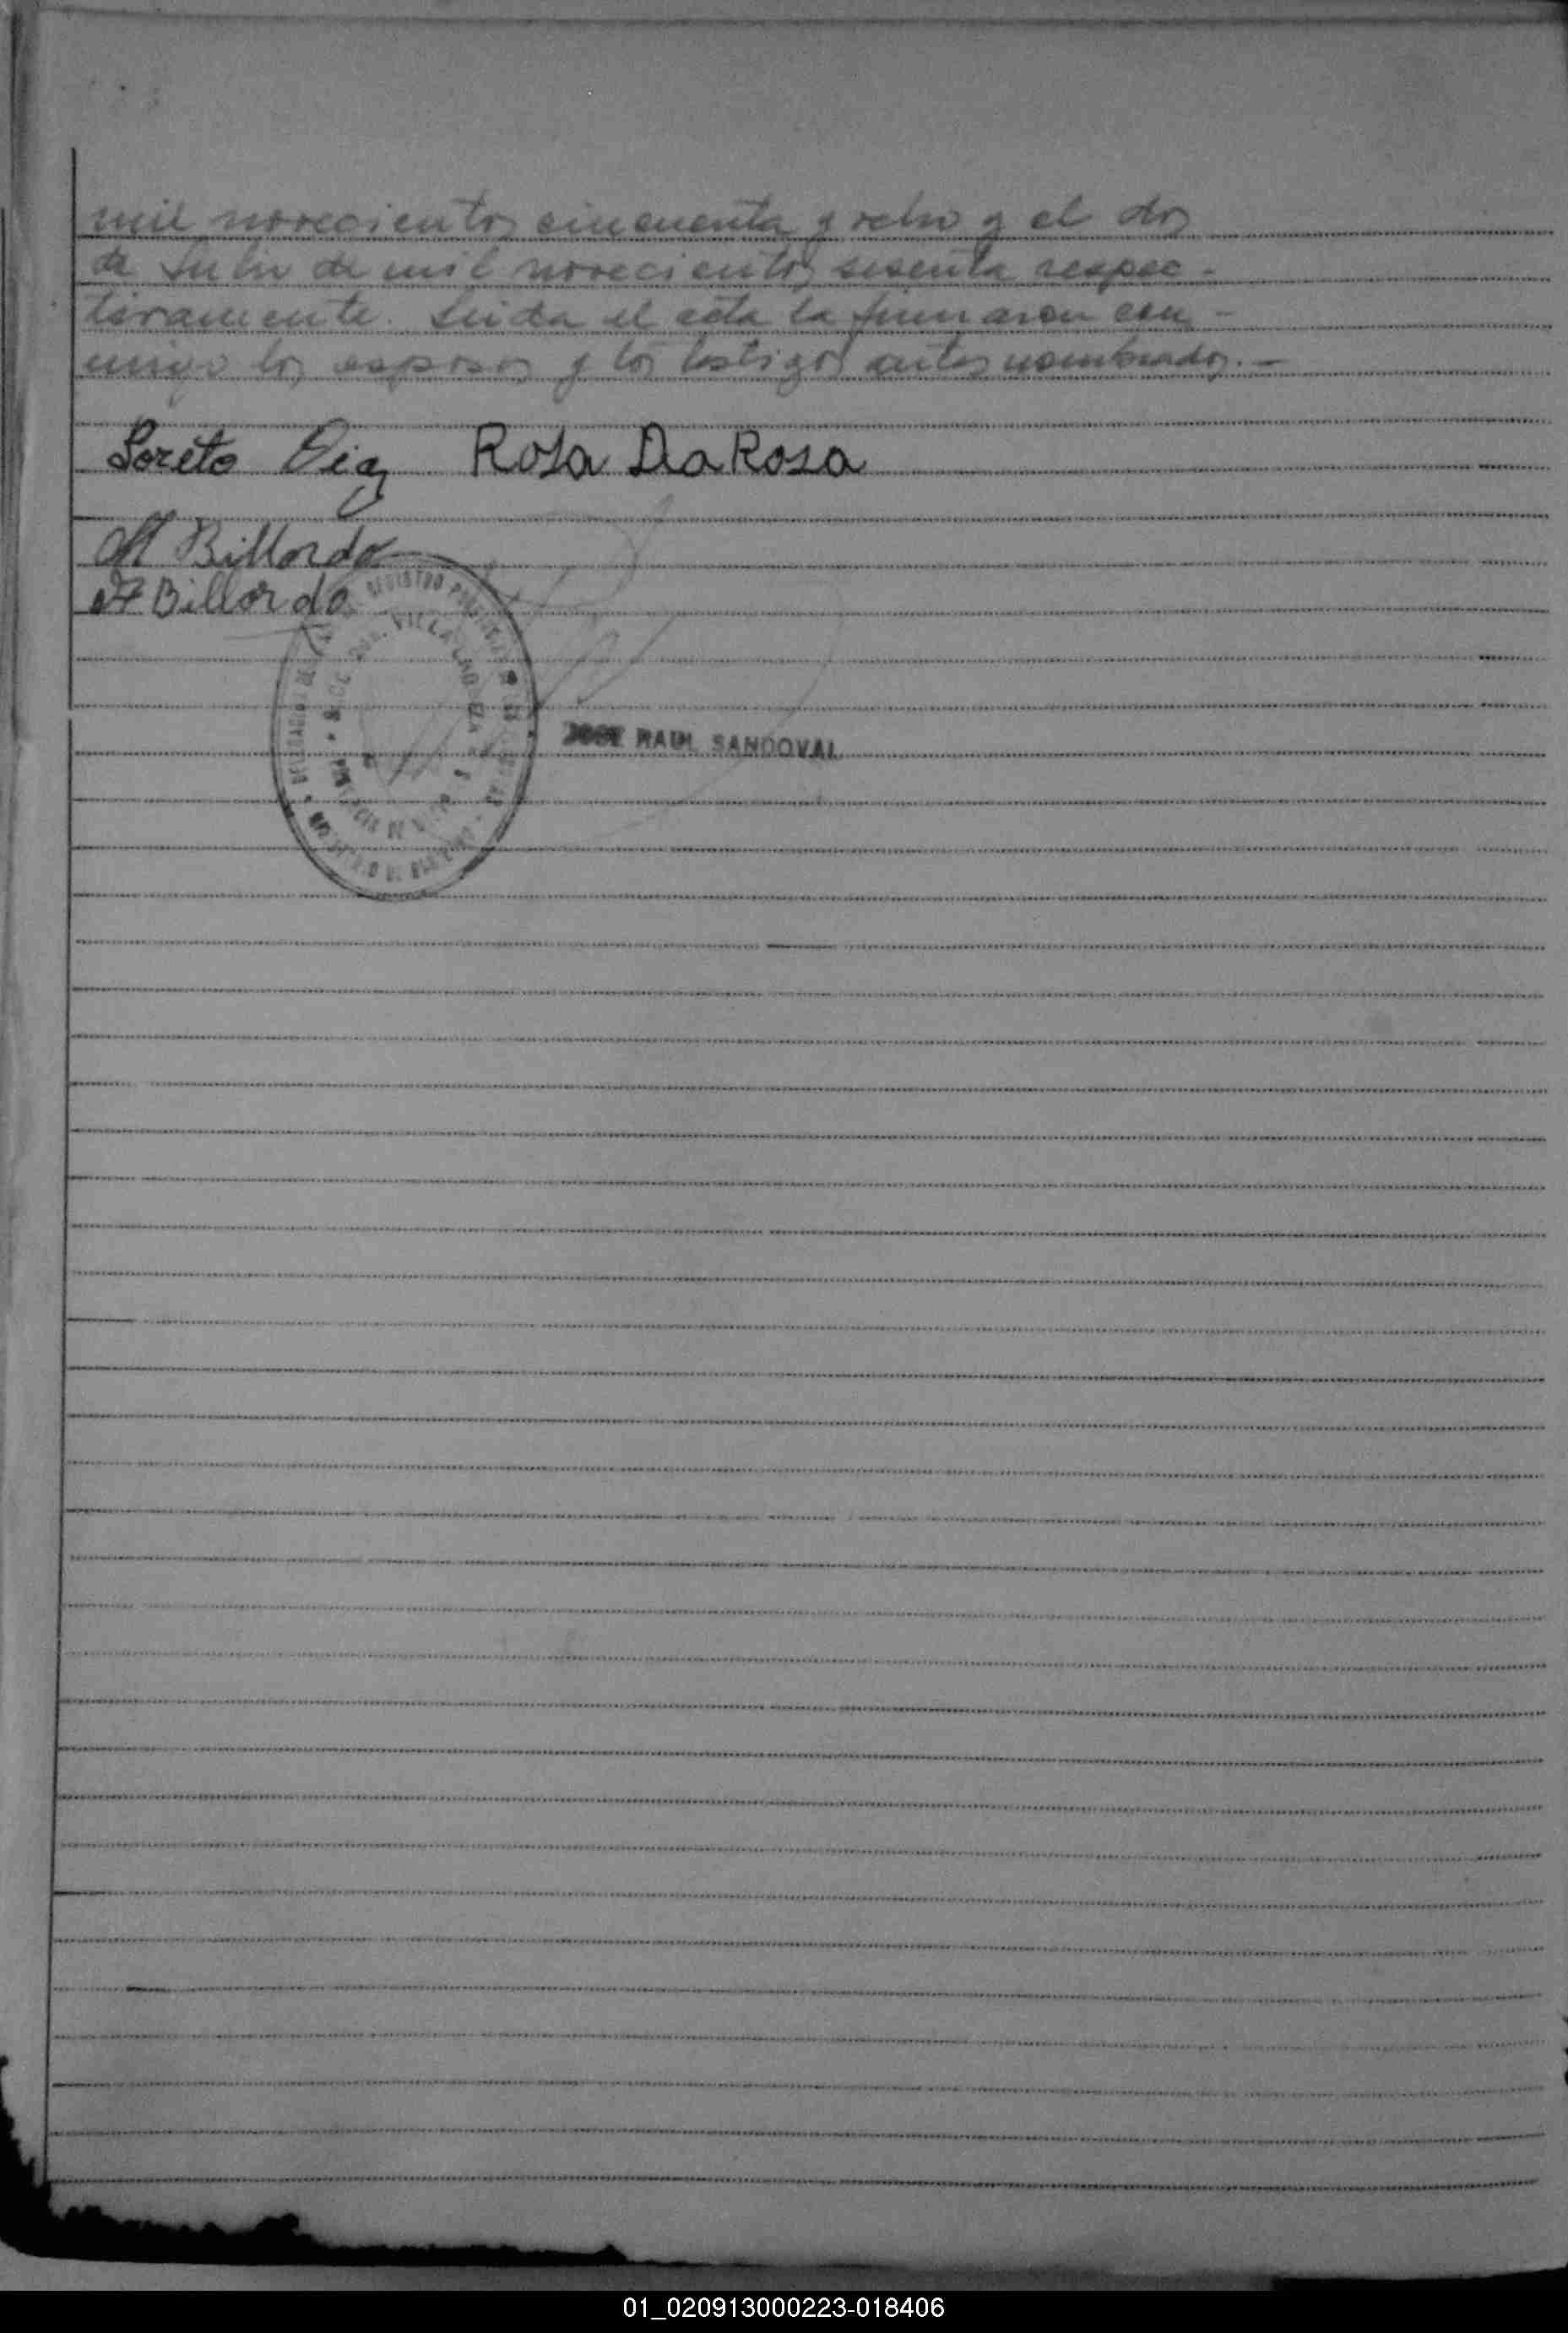 mil novecientos cincuenta y ocho y el dos
de Julio de mil novecientos sesenta respec-
tivamente. Leida el acta la firmaron con-
migo los esposos y los testigos antes nombrados.-
Loreto Diaz Rosa Da Rosa
M Billordo
F Billordo
REGISTRO
VILLA
JOSE RAUL SANDOVAL
01_020913000223-018406